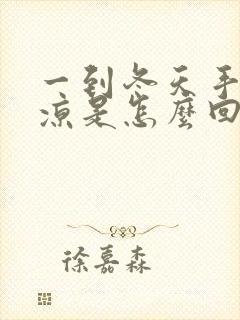 一到冬天手
凉是怎麽回
徐嘉森